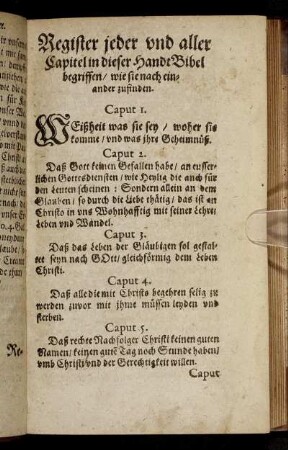 Register jeder vnd aller
Capitel in dieser Handt Bibel
begriffen / wie sie nach ein-
ander zufinden.
Caput 1.
WEißheit was sie sey / woher sie
komme / vnd was jhre Geheimnüß.
Caput 2.
Daß Gott keinen Gefallen habe / an eusser-
lichen Gottesdiensten / wie Heylig die auch für
den Leuten scheinen : Sondern allein an dem
Glauben / so durch die Liebe thätig / das ist an
Christo in vns Wohnhafftig mit seiner Lehre /
Leben vnd Wandel.
Caput 3.
Daß das Leben der Gläubigen sol gestal-
tet seyn nach GOtt / gleichförmig dem Leben
Christi.
Caput 4.
Daß alle die mit Christo begehren selig zu
werden zuvor mit jhme müssen leyden vnd
sterben.
Caput 5.
Daß rechte Nachfolger Christi keinen guten
Namen / keinen gutẽ Tag noch Stunde haben /
vmb Christi vnd der Gerechtigkeit willen.
Caput
Re-